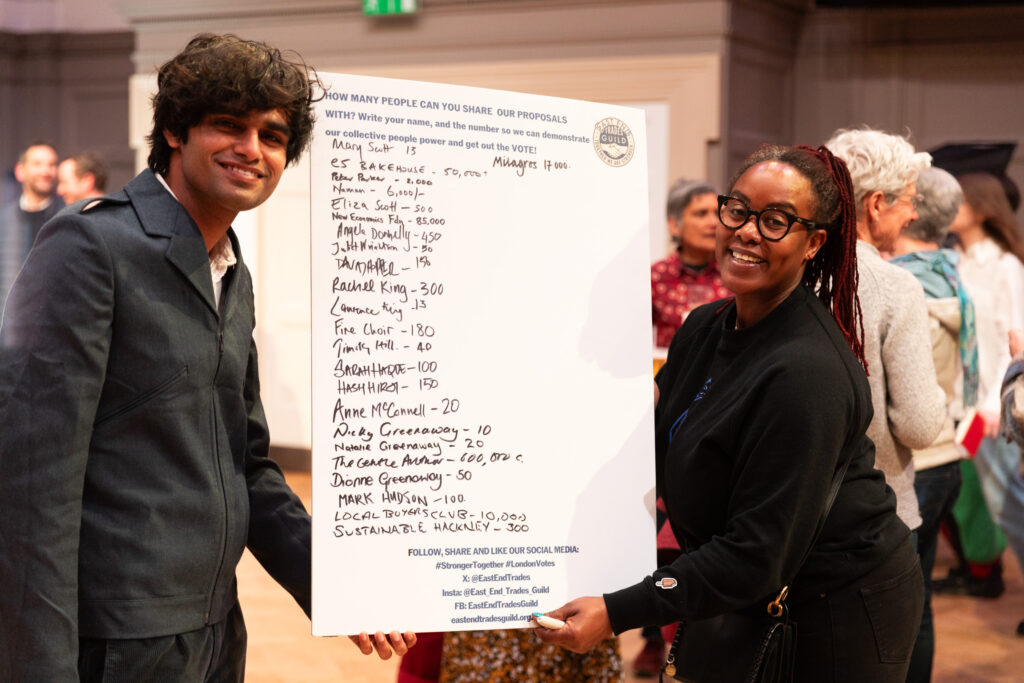 HOW MANY PEOPLE CAN YOU SHARE OUR PROPOSALS
WITH? Write your name, and the number so we can demonstrate
our collective people power and get out the VOTE!
EAST END
TRADES
GUILD
Mary Scott 13
Milagres 17000
E5 BAKEHOUSE - 50,000+
Peter Parker - 2,000
Naman - 6,000/-
Eliza Scott - 500
New Economics Fdn - 85,000
Angela Donnelly - 450
- 50
- 150
Rachel King - 300
Laurence King - 13
Fire Choir - 180
Timothy Hill. - 40
SARAH HAQUE - 100
- 150
Anne McConnell - 20
Nicky Greenaway - 10
Natalie Greenaway - 20
The Gentle Author - 600,000 c.
Dionne Greenaway - 50
MARK HUDSON - 100.
LOCAL BUYERS CLUB - 10,000
SUSTAINABLE HACKNEY - 300
FOLLOW, SHARE AND LIKE OUR SOCIAL MEDIA:
#StrongerTogether #LondonVotes
X: @EastEndTrades
Insta: @East_End_Trades_Guild
FB: EastEndTradesGuild
eastendtradesguild.org